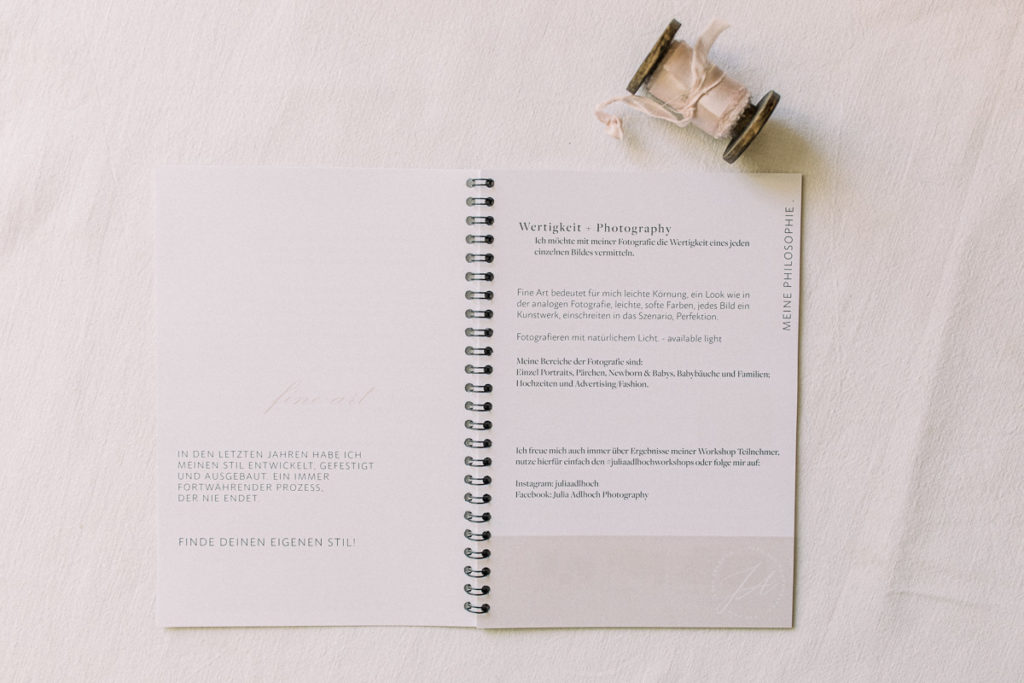 fine art
IN DEN LETZTEN JAHREN HABE ICH
MEINEN STIL ENTWICKELT, GEFESTIGT
UND AUSGEBAUT. EIN IMMER
FORTWÄHRENDER PROZESS,
DER NIE ENDET.
FINDE DEINEN EIGENEN STIL!
Wertigkeit + Photography
Ich möchte mit meiner Fotografie die Wertigkeit eines jeden
einzelnen Bildes vermitteln.
Fine Art bedeutet für mich leichte Körnung, ein Look wie in
der analogen Fotografie, leichte, softe Farben, jedes Bild ein
Kunstwerk, einschreiten in das Szenario, Perfektion.
Fotografieren mit natürlichem Licht. - available light
Meine Bereiche der Fotografie sind:
Einzel Portraits, Pärchen, Newborn & Babys, Babybäuche und Familien;
Hochzeiten und Advertising/Fashion.
Ich freue mich auch immer über Ergebnisse meiner Workshop Teilnehmer,
nutze hierfür einfach den #juliaadlhochworkshops oder folge mir auf:
Instagram: juliaadlhoch
Facebook: Julia Adlhoch Photography
MEINE PHILOSOPHIE.